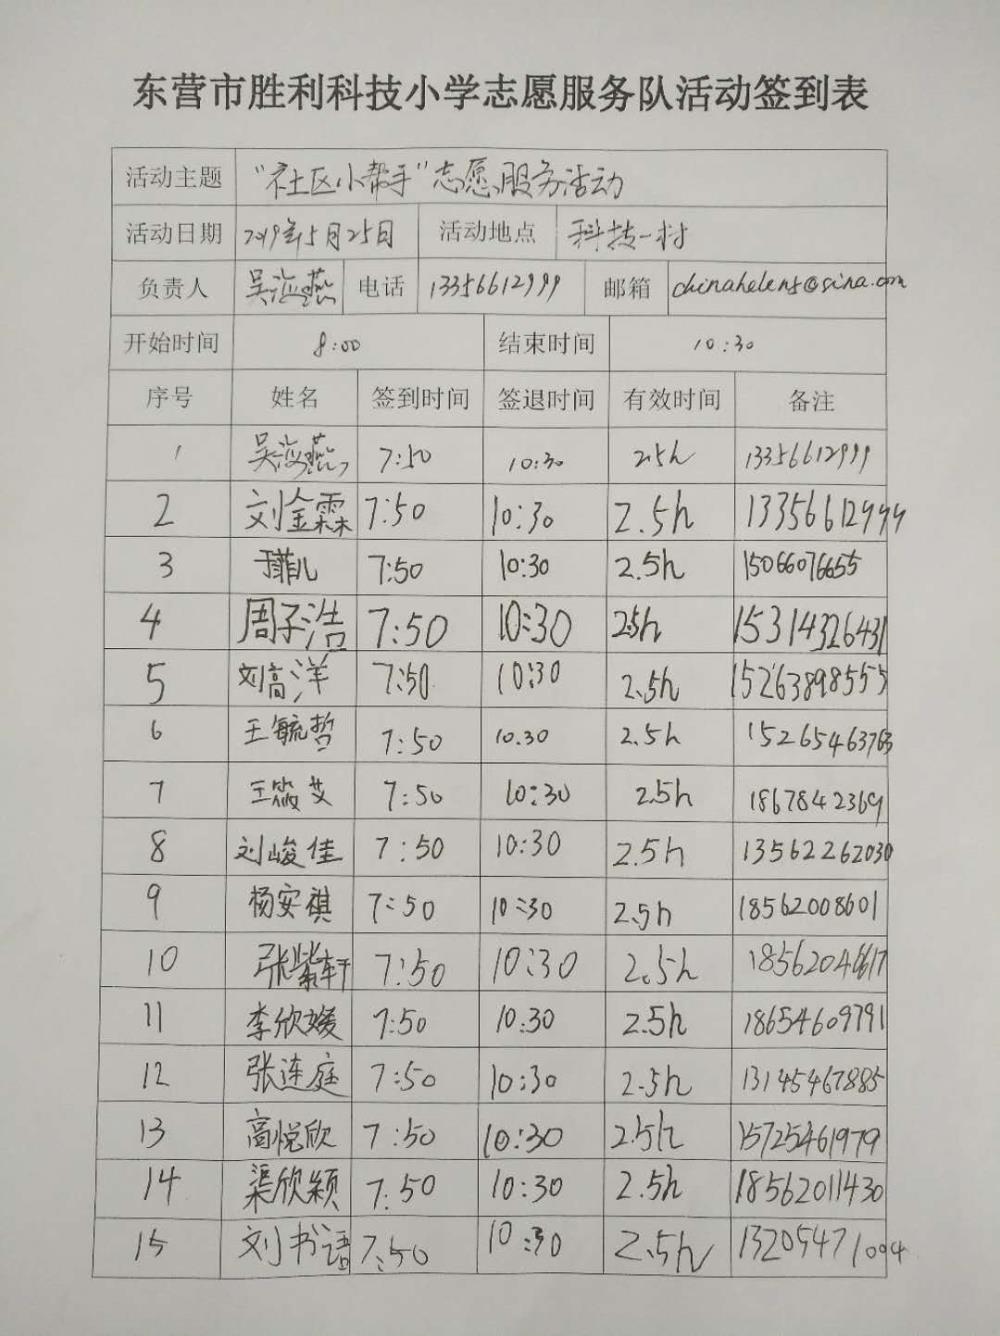 东营市胜利科技小学志愿服务队活动签到表
活动主题 "社区小帮手"志愿服务活动
活动日期 2019年5月25日 活动地点 科技一村
负责人 吴海燕 电话 13356612999 邮箱 chinahelens@sina.com
开始时间 8:00 结束时间 10:30
序号 姓名 签到时间 签退时间 有效时间 备注
1 吴海燕 7:50 10:30 2.5h 13356612999
2 刘金霖 7:50 10:30 2.5h 13356612999
3 于菲儿 7:50 10:30 2.5h 15066076655
4 周子浩 7:50 10:30 2.5h 15314326431
5 刘高洋 7:50 10:30 2.5h 15263898555
6 王毓哲 7:50 10.30 2.5h 15265463763
7 王筱艾 7:50 10:30 2.5h 1867842369
8 刘峻佳 7:50 10:30 2.5h 13562262030
9 杨安祺 7:50 10:30 2.5h 18562008601
10 张紫轩 7:50 10:30 2.5h
11 李欣媛 7:50 10:30 2.5h 18654609791
12 张连庭 7:50 10:30 2.5h 13145467885
13 高悦欣 7:50 10:30 2.5h 15725461979
14 渠欣颖 7:50 10:30 2.5h 18562011430
15 刘书语 7:50 10:30 2.5h 13205471004